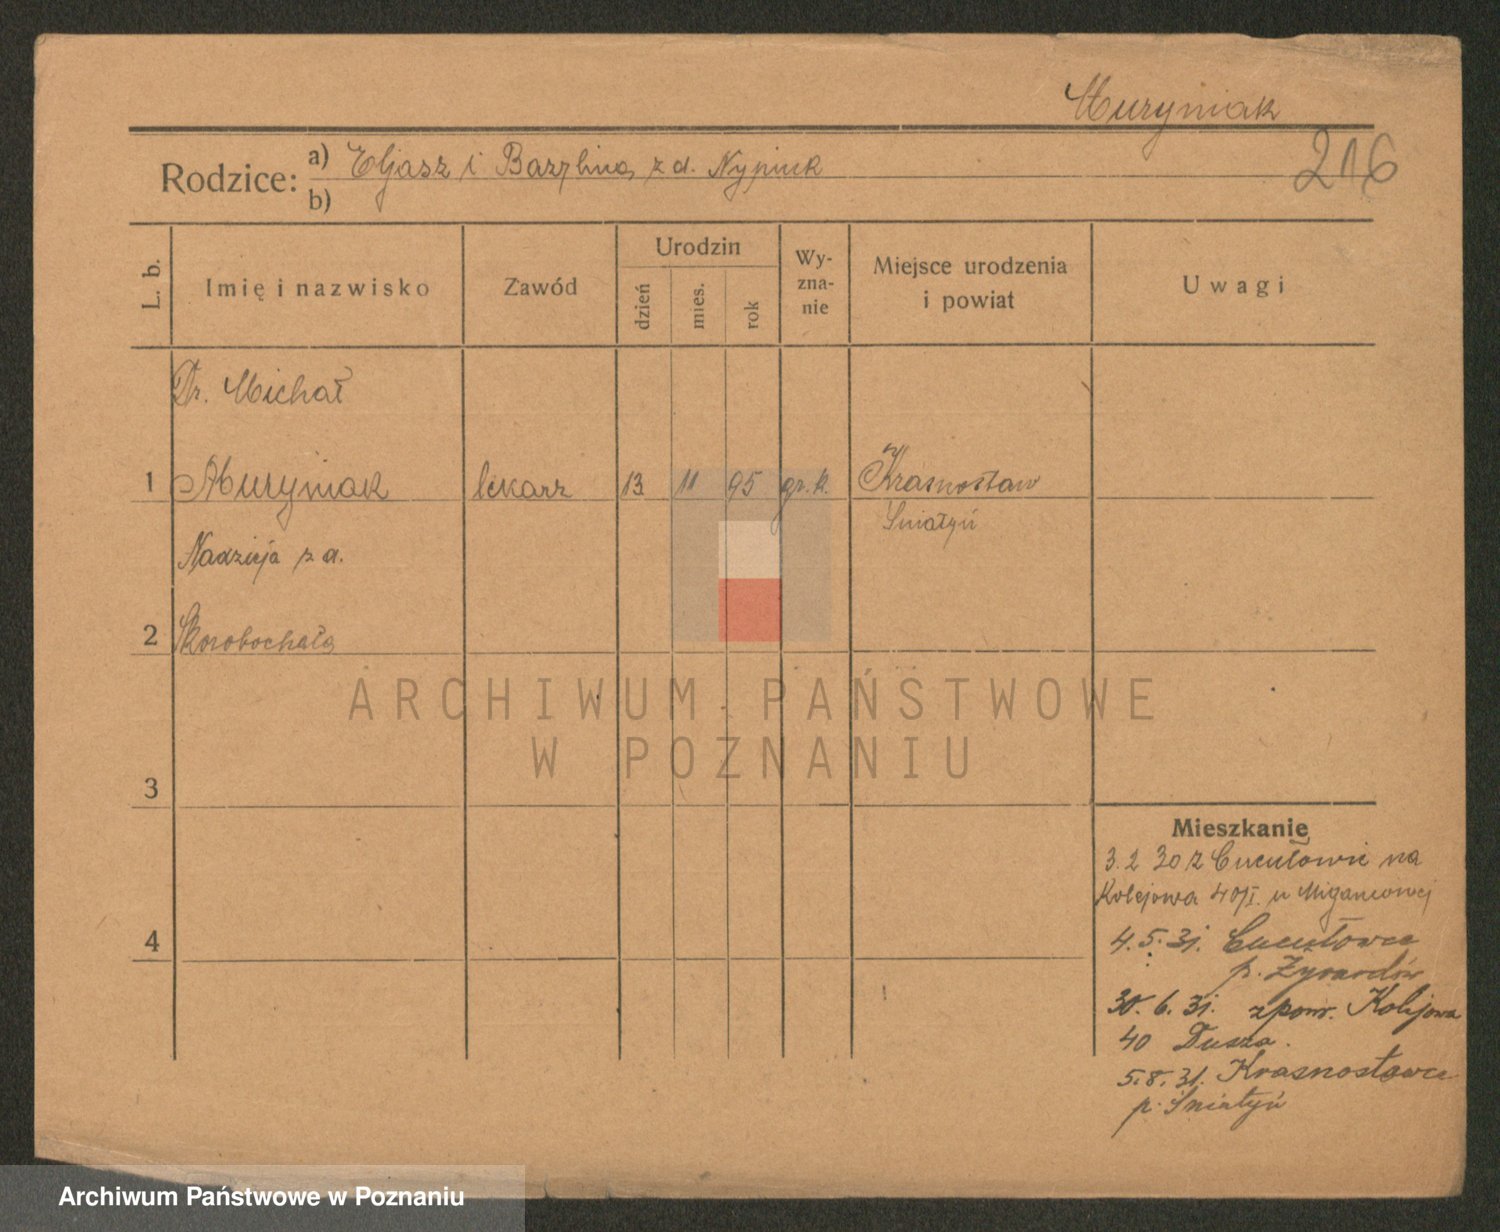 Muryniak
216
Rodzice: a) Eljasz i Bazylina z d. Nypiuk
b)
L. b.
Imię i nazwisko
Zawód
Urodzin
dzień
mies.
rok
Wy-
zna-
nie
Miejsce urodzenia
i powiat
Uwagi
Dr. Michał
1 Muryniak lekarz 13 11 95 gr. k. Krasnostaw
Śniatyń
Nadzieja z d.
2 Skorobochała
3
4
ARCHIWUM PAŃSTWOWE
W POZNANIU
Mieszkanie
3.2 30 z Cucułowic na
Kolejowa 40/I. u
4.5.31. Cucułowce
p. Żyrardów
30.6.31. zpow. Kolejowa
40 Dusza.
5.8.31. Krasnostawce
p. Śniatyń
Archiwum Państwowe w Poznaniu